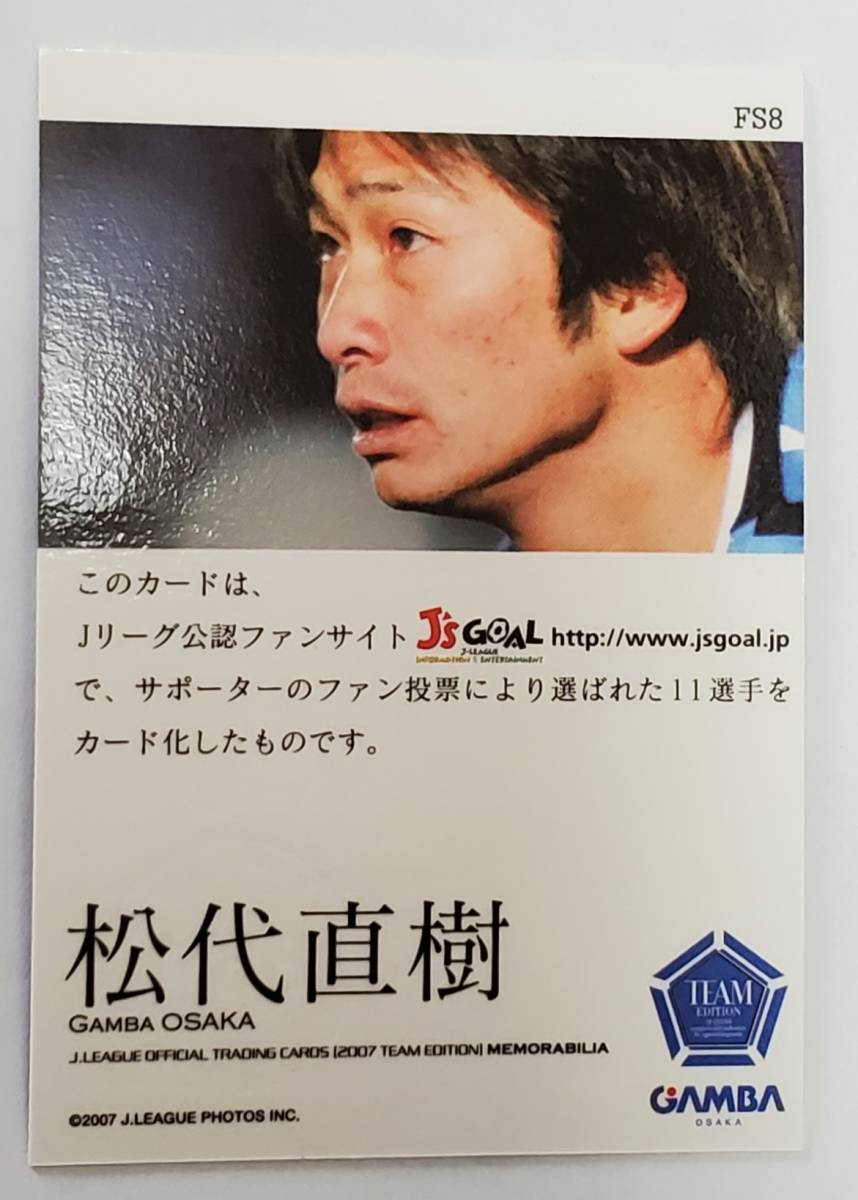 FS8
このカードは、
Jリーグ公認ファンサイト J'sGOAL http://www.jsgoal.jp
J-LEAGUE
INFORMATION & ENTERTAINMENT
で、サポーターのファン投票により選ばれた11選手を
カード化したものです。
松代直樹
GAMBA OSAKA
J.LEAGUE OFFICIAL TRADING CARDS [2007 TEAM EDITION] MEMORABILIA
©2007 J.LEAGUE PHOTOS INC.
TEAM
EDITION
GAMBA
OSAKA